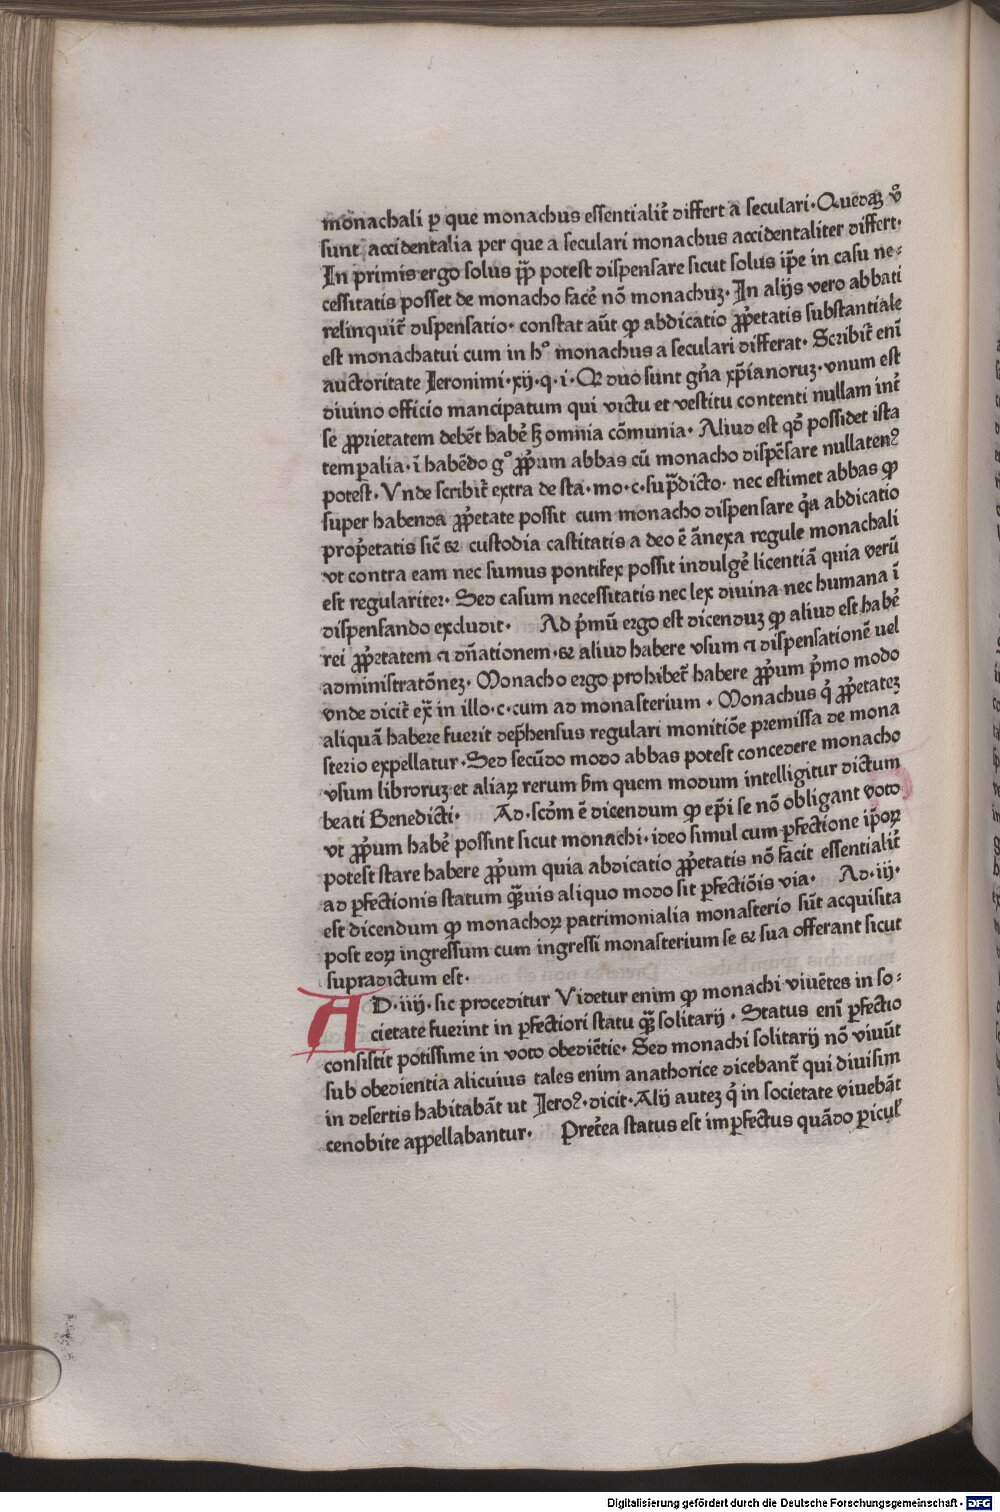 monachali ꝑ que monachus essentialit̄ differt a seculari·Quedaꝫ v̊
sunt accidentalia per que a seculari monachus accidentaliter differt·
In primis ergo solus pp̄ potest dispensare sicut solus ip̄e in casu ne-
cessitatis posset de monacho facē nō monachuꝫ· In alijs vero abbati
relinquit̄ dispensatio· constat aūt ꝙ abdicatio ꝓp̄etatis substantiale
est monachatui cum in h° monachus a seculari differat· Scribit̄ enī
auctoritate Ieronimi·xij·q·i·Q duo sunt gn̄a xp̄ianoruꝫ·vnum est
diuino officio mancipatum qui victu et vestitu contenti nullam int̄
se ꝓprietatem debēt habē sꝫ omnia cōmunia· Aliud est qd̄ possidet ista
temꝑalia·ī habēdo g° ꝓp̄um abbas cū monacho dispēsare nullatenꝰ
potest·Vnde scribit̄ extra de sta·mo·c·sup̄dicto· nec estimet abbas ꝙ
super habenda ꝓp̄etate possit cum monacho dispensare q̄a abdicatio
prop̄etatis sic̄ & custodia castitatis a deo ē ānexa regule monachali
vt contra eam nec sumus pontifex possit indulgē licentiā quia verū
est regulariter· Sed casum necessitatis nec lex diuina nec humana ī
dispensando excludit· Ad p̄mū ergo est dicenduꝫ ꝙ aliud est habē
rei ꝓp̄etatem ⁊ dn̄ationem·& aliud habere vsum ⁊ dispensationē uel
administratōneꝫ· Monacho ergo prohibet̄ habere ꝓp̄um p̄mo modo
vnde dicit̄ ex̄ in illo·c·cum ad monasterium · Monachus q̄ ꝓp̄etateꝫ
aliquā habere fuerit dep̄hensus regulari monitiōe premissa de mona
sterio expellatur·Sed secūdo modo abbas potest concedere monacho
vsum libroruꝫ et aliaꝝ rerum ẜm quem modum intelligitur dictum
beati Benedicti· Ad·scd̄m ē dicendum ꝙ ep̄i se nō obligant voto
vt ꝓp̄um habē possint sicut monachi·ideo simul cum ꝑfectione ip̄oꝝ
potest stare habere ꝓp̄um quia abdicatio ꝓp̄etatis nō facit essentialit̄
ad ꝑfectionis statum qꝫuis aliquo modo sit ꝑfectiōis via· Ad·iij·
est dicendum ꝙ monachoꝝ patrimonialia monasterio sūt acquisita
post eoꝝ ingressum cum ingressi monasterium se & sua offerant sicut
supradictum est·
AD·iiij·sic proceditur Videtur enim ꝙ monachi viuētes in so-
cietate fuerint in ꝑfectiori statu qꝫ solitarij · Status enī ꝑfectio
consistit potissime in voto obediētie· Sed monachi solitarij nō viuūt
sub obedientia alicuius tales enim anathorice dicebant̄ qui diuisim
in desertis habitabāt ut Ieroꝰ·dicit·Alij auteꝫ q̄ in societate viuebāt
cenobite appellabantur· Pret̄ea status est imꝑfectus quādo ꝑicul̄
Digitalisierung gefördert durch die Deutsche Forschungsgemeinschaft - DFG